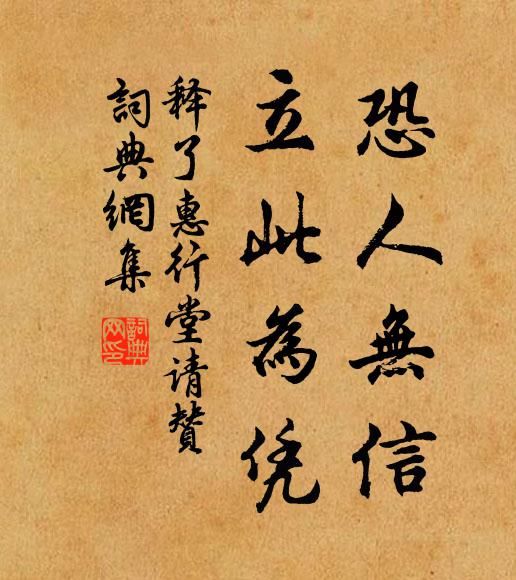 恐人無信
立此為凭
释了惠行堂请赞
詞典網集
詞典网印